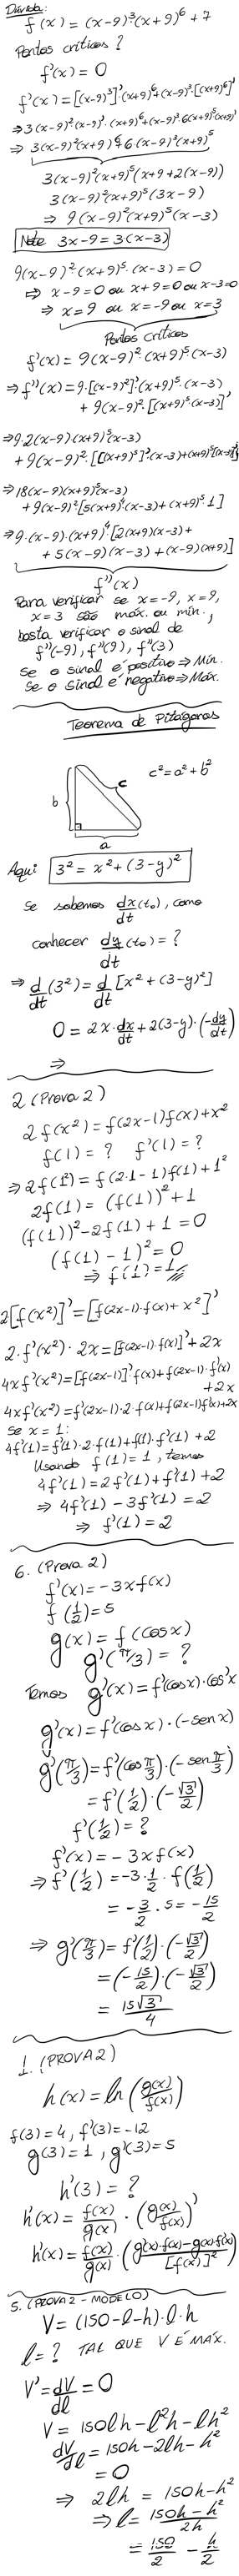 Dúvida:
f(x) = (x-9)³(x+9)⁶ + 7
Pontos críticos?
f'(x) = 0
f'(x) = [(x-9)³]'·(x+9)⁶+(x-9)³·[(x+9)⁶]'
⇒ 3(x-9)²(x-9)'·(x+9)⁶+(x-9)³·6(x+9)⁵(x+9)'
⇒ 3(x-9)²(x+9)⁶+6·(x-9)³(x+9)⁵
3(x-9)²(x+9)⁵(x+9+2(x-9))
3(x-9)²(x+9)⁵(3x-9)
⇒ 9(x-9)²(x+9)⁵(x-3)
Note 3x-9=3(x-3)
9(x-9)²·(x+9)⁵·(x-3)=0
⇒ x-9=0 ou x+9=0 ou x-3=0
⇒ x=9 ou x=-9 ou x=3
Pontos críticos
f'(x) = 9(x-9)²·(x+9)⁵(x-3)
⇒ f''(x)=9·[(x-9)²]'(x+9)⁵·(x-3)
+ 9(x-9)²·[(x+9)⁵(x-3)]'
⇒9·2(x-9)(x+9)⁵(x-3)
+9(x-9)²·[[(x+9)⁵]'(x-3)+(x+9)⁵(x-3)']
⇒18(x-9)(x+9)⁵(x-3)
+9(x-9)²[5(x+9)⁴(x-3)+(x+9)⁵·1]
⇒9·(x-9)·(x+9)⁴[2(x+9)(x-3)+
+5(x-9)(x-3)+(x-9)(x+9)]
f''(x)
Para verificar se x=-9, x=9,
x=3 são máx. ou mín.,
basta verificar o sinal de
f''(-9), f''(9), f''(3)
Se o sinal é positivo ⇒ Mín.
Se o sinal é negativo ⇒ Máx.
Teorema de Pitágoras
c²=a²+b²
b
c
a
Aqui 3² = x²+(3-y)²
Se sabemos dx/dt(t₀), como
conhecer dy/dt(t₀)=?
⇒ d/dt(3²)=d/dt[x²+(3-y)²]
0=2x·dx/dt+2(3-y)·(-dy/dt)
⇒
2 (Prova 2)
2f(x²)=f(2x-1)f(x)+x²
f(1)=? f'(1)=?
⇒2f(1²)=f(2·1-1)f(1)+1²
2f(1)=(f(1))²+1
(f(1))²-2f(1)+1=0
(f(1)-1)²=0
⇒ f(1)=1
2[f(x²)]'=[f(2x-1)·f(x)+x²]'
2·f'(x²)·2x=[f(2x-1)·f(x)]'+2x
4xf'(x²)=[f(2x-1)]'f(x)+f(2x-1)·f'(x)
+2x
4xf'(x²)=f'(2x-1)·2·f(x)+f(2x-1)f'(x)+2x
Se x=1:
4f'(1)=f'(1)·2·f(1)+f(1)·f'(1)+2
Usando f(1)=1, temos
4f'(1)=2f'(1)+f'(1)+2
⇒ 4f'(1)-3f'(1)=2
⇒ f'(1)=2
6. (Prova 2)
f'(x)=-3xf(x)
f(1/2)=5
g(x)=f(cosx)
g'(π/3)=?
Temos g'(x)=f'(cosx)·cos'x
g'(x)=f'(cosx)·(-senx)
g'(π/3)=f'(cos π/3)·(-sen π/3)
=f'(1/2)·(-√3/2)
f'(1/2)=?
f'(x)=-3xf(x)
⇒ f'(1/2)=-3·1/2·f(1/2)
=-3/2·5=-15/2
⇒ g'(π/3)=f'(1/2)·(-√3/2)
=(-15/2)·(-√3/2)
=15√3/4
1. (PROVA 2)
h(x)=ln(g(x)/f(x))
f(3)=4, f'(3)=-12
g(3)=1, g'(3)=5
h'(3)=?
h'(x)=f(x)/g(x)·(g(x)/f(x))'
h'(x)=f(x)/g(x)·(g'(x)·f(x)-g(x)f'(x)/[f(x)]²)
5. (PROVA 2 - MODELO)
V=(150-l-h)·l·h
l=? TAL QUE V É MÁX.
V'=dV/dl=0
V=150lh-l²h-lh²
dV/dl=150h-2lh-h²
=0
⇒ 2lh=150h-h²
⇒ l=150h-h²/2h
=150/2-h/2